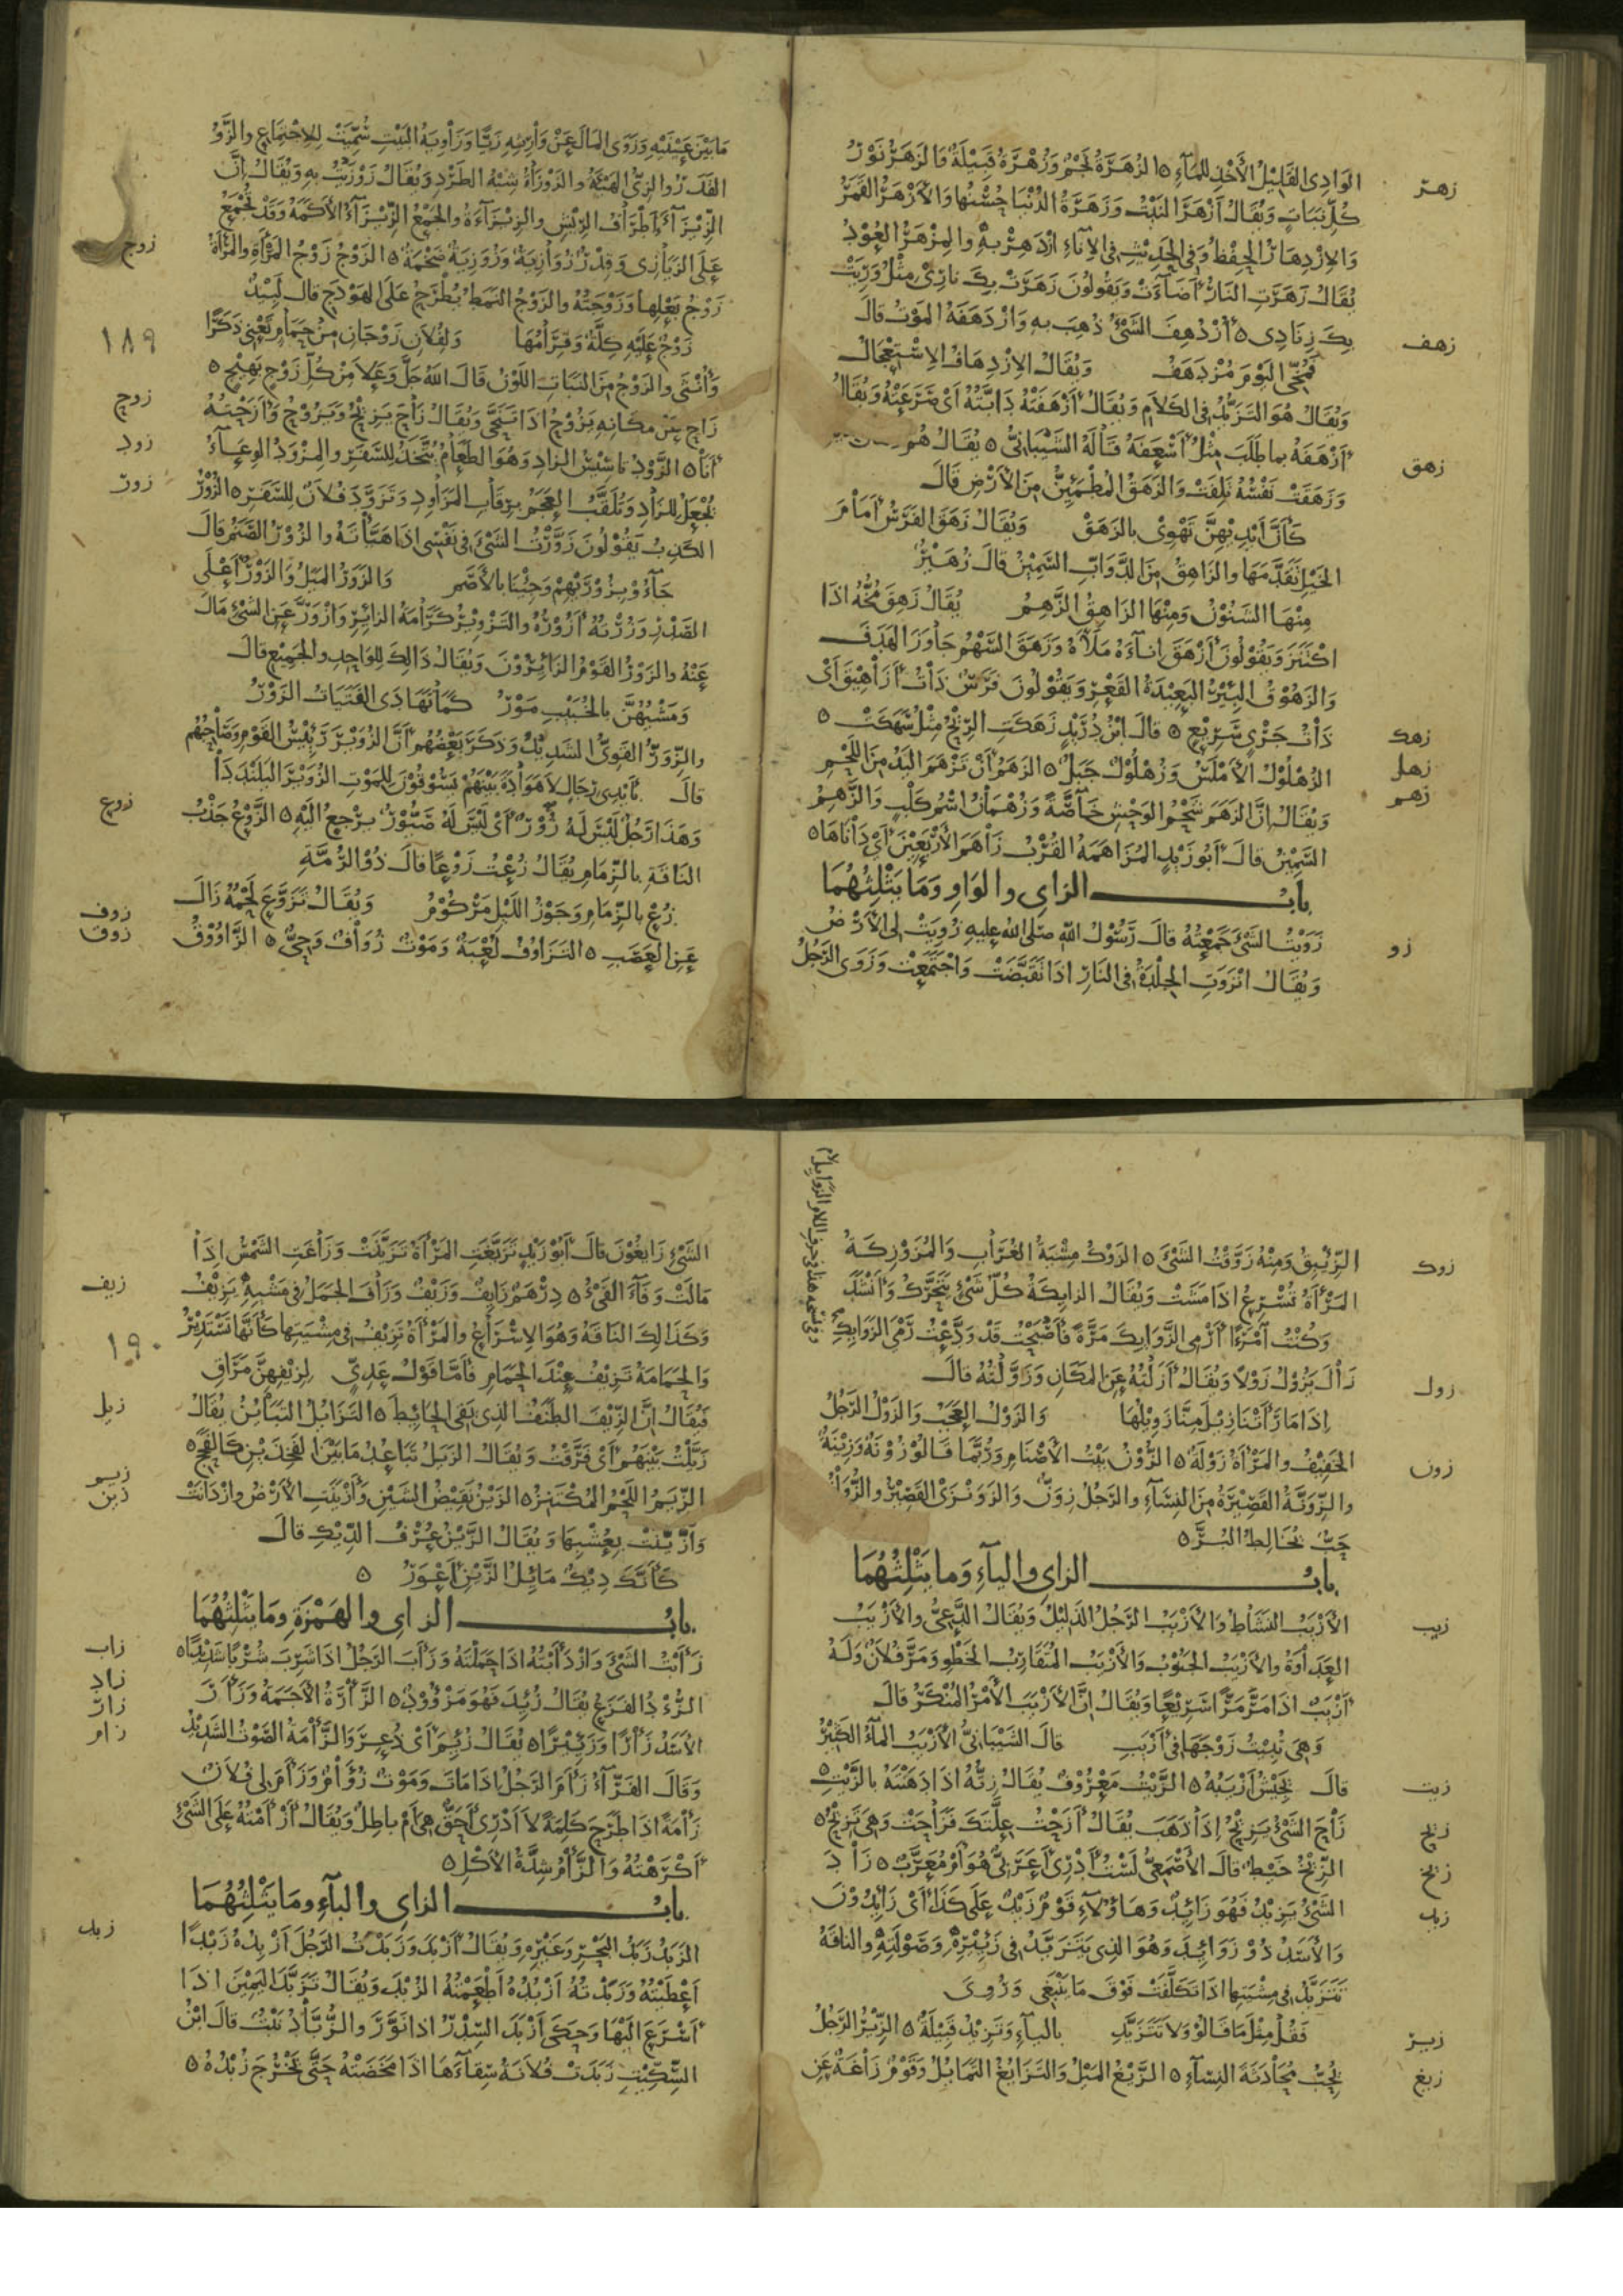 الوَادِي القَلِيْلُ الأَخْذِ لِلمَآءِ ٥ الزُهَرَةُ نَجْمٌ وَزُهْرَةُ قَبِيْلَةٌ وَالزَهْرُ نَوْرُ
زهر
كُلِّ نَبَاتٍ وَيُقَالُ أَزْهَرَ النَبْتُ وَزَهْرَةُ الدُنْيَا حُسْنُهَا وَالأَزْهَرُ القَمَرُ
وَالاِزْدِهَارُ الحِفْظُ وَفِي الحَدِيْثِ فِي الإِنَآءِ ازْدَهِرْ بِهِ وَالمِزْهَرُ العُوْدُ
يُقَالُ زَهَرَتِ النَارُ أَضَآءَتْ وَيَقُوْلُونَ زَهَرَتْ بِكَ نَارِي مِثْلُ وَرِيَتْ
بِكَ زِنَادِي ٥ أُزْدُهِفَ الشَيْءُ ذُهِبَ بِهِ وَازْدَهَفَهُ المَوْتُ قَالَ
زهف
مُزْدَهَفْ وَيُقَالُ الاِزْدِهَافُ الاِسْتِعْجَالُ
وَيُقَالُ هُوَ التَزَيُّدُ فِي الكَلاَمِ وَيُقَالُ أَزْهَفَتْهُ دَابَّتُهُ أَيْ صَرَعَتْهُ وَيُقَالُ
أَزْهَفَهُ بِمَا طَلَبَ مِثْلُ أَسْعَفَهُ قَالَهُ الشَيْبَانِيُّ ٥ يُقَالُ
زهق
وَزَهَقَتْ نَفْسُهُ تَلِفَتْ وَالزَهَقُ المُطْمَئِنُّ مِنَ الأَرْضِ قَالَ
كَأَنَّ أَيْدِيْهِنَّ تَهْوِيْ بِالزَهَقْ وَيُقَالُ زَهَقَ الفَرَسُ أَمَامَ
الخَيْلِ تَقَدَّمَهَا وَالزَاهِقُ مِنَ الدَّوَابِّ السَّمِيْنُ قَالَ زُهَيْرٌ
مِنْهَا الشَنُوْنُ وَمِنْهَا الزَاهِقُ الزَّهِمُ يُقَالُ زَهِقَ مُخُّهُ اذَا
اكْتَنَزَ وَيَقُوْلُونَ أَزْهَقَ إِنَاءَهُ مَلَأَهُ وَزَهَقَ السَّهْمُ جَاوَزَ الهَدَفَ
وَالزَهُوْقُ البِئْرُ البَعِيْدَةُ القَعْرِ وَيَقُوْلُونَ فَرَسٌ ذَاتُ أَزَاهِيْقَ أَيْ
ذَاتُ جَرْيٍ سَرِيْعٍ ٥ قَالَ ابْنُ دُرَيْدٍ زَهَكَتِ الرِّيْحُ مِثْلُ سَهَكَتْ ٥
زهك
الزُهْلُوْلُ الأَمْلَسُ وَزُهْلُوْلُ جَبَلٌ ٥ الزَهَمُ أَنْ تَزْهَمَ اليَدُ مِنَ اللَحْمِ
زهل
زهم
وَيُقَالُ إِنَّ الزَهَمَ شَحْمُ الوَحْشِ خَاصَّةً وَزُهْمَانُ اسْمُ كَلْبٍ وَالزَهِمُ
السَّمِيْنُ قَالَ أَبُو زَيْدٍ المُزَاهَمَةُ القُرْبُ زَاهَمَ الأَرْبَعِيْنَ أَيْ دَانَاهَا ٥
بابُ الزاي والوَاوِ وَمَا يَثْلِثُهُمَا
زَوَيْتُ الشَيْءَ جَمَعْتُهُ قَالَ رَسُوْلُ اللهِ صَلى الله عليهِ زُوِيَتْ لِي الأَرْضُ
زو
وَيُقَالُ انْزَوَتِ الجِلْدَةُ فِي النَارِ اذَا تَقَبَّضَتْ وَاجْتَمَعَتْ وَزَوَى الرَجُلُ
مَا بَيْنَ عَيْنَيْهِ وَزَوَى المَالَ عَنْ وَارِثِهِ زَيًّا وَزَاوِيَةُ البَيْتِ سُمِّيَتْ لِلاِجْتِمَاعِ وَالزَّوُّ
القَدَرُ وَالزِيُّ الهَيْئَةُ وَالزَوْزَاةُ شِبْهُ الطَرْدِ وَيُقَالُ زَوْزَيْتُ بِهِ وَيُقَالُ إِنَّ
الزِّيْزَآءَ أَطْرَافُ الرِيْشِ وَالزِيْزَآءَةُ وَالجَمْعُ الزِّيْزَآءُ الأَكَمَةُ وَقَدْ تُجْمَعُ
عَلَى الزَيَازِي وَقِدْرٌ زُوَازِيَةٌ وَزُوَزِيَةٌ ضَخْمَةٌ ٥ الزَوْجُ زَوْجُ المَرْأَةِ وَالمَرْأَةُ
زوج
زَوْجُ بَعْلِهَا وَزَوْجَتُهُ وَالزَوْجُ النَمَطُ يُطْرَحُ عَلَى الهَوْدَجِ قَالَ لَبِيْدٌ
زَوْجٌ عَلَيْهِ كِلَّةٌ وَقِرَامُهَا وَلِفُلاَنٍ زَوْجَانِ مِنْ حَمَامٍ يَعْنِي ذَكَرًا
١٨٩
وَأُنْثَى وَالزَوْجُ مِنَ النَبَاتِ اللَوْنُ قَالَ اللهُ جَلَّ وَعَلاَ مِنْ كُلِّ زَوْجٍ بَهِيْجٍ ٥
زَاحَ عَنْ مَكَانِهِ يَزُوْحُ اذَا تَنَحَّى وَيُقَالُ زَاحَ يَزِيْحُ وَيَزُوْحُ وَأَزَحْتُهُ
زوح
أَنَا ٥ الزَّوْدُ تَأْسِيْسُ الزَادِ وَهُوَ الطَعَامُ يُتَّخَذُ لِلسَّفَرِ وَالمِزْوَدُ الوِعَآءُ
زود
يُجْعَلُ لِلزَادِ وَتُلَقَّبُ العَجَمُ بِرِقَابِ المَزَاوِدِ وَتَزَوَّدَ فُلاَنٌ لِلسَفَرِ ٥ الزُوْرُ
زور
الكَذِبُ يَقُوْلُونَ زَوَّرْتُ الشَيْءَ فِي نَفْسِي اذَا هَيَّأْتَهُ وَالزُوْرُ الصَّنَمُ قَالَ
جَآءُوْ بِزُوْرَيْهِمْ وَجِئْنَا بِالأَصَمّ وَالزَوَرُ المَيْلُ وَالزَوْرُ أَعْلَى
الصَدْرِ وَزُرْتُهُ أَزُوْرُهُ وَالتَزْوِيْرُ كَرَامَةُ الزَائِرِ وَازْوَرَّ عَنِ الشَيْءِ مَالَ
عَنْهُ وَالزَوْرُ القَوْمُ الزَائِرُوْنَ وَيُقَالُ ذَالِكَ لِلوَاحِدِ وَالجَمِيْعِ قَالَ
وَمَشْيُهُنَّ بِالخُبَيْبِ مَوْرُ كَمَا تَهَادَى الفَتَيَاتُ الزَوْرُ
وَالزِّوَرُّ القَوِيُّ الشَدِيْدُ وَذَكَرَ بَعْضُهُمْ أَنَّ الزُوَيْرَ رَئِيْسُ القَوْمِ وَصَاحِبُهُمْ
قَالَ بِأَيْدِي رِجَالٍ لاَ هَوَادَةَ بَيْنَهُمْ يَسُوْقُوْنَ لِلمَوْتِ الزُوَيْرَ البَلَنْدَدَا
وَهَذَا رَجُلٌ لَيْسَ لَهُ زُوْرٌ أَيْ لَيْسَ لَهُ صَيُّوْرٌ يَرْجِعُ الَيْهِ ٥ الزَّوْعُ جَذْبُ
زوع
النَاقَةِ بِالزِّمَامِ يُقَالُ زُعْتُ زَوْعًا قَالَ ذُوْ الرُمَّةِ
زُعْ بِالزِّمَامِ وَجَوْزُ اللَيْلِ مَرْكُوْمُ وَيُقَالُ تَزَوَّعَ لَحْمُهُ زَالَ
عَنِ العَصَبِ ٥ التَزَاوُفُ لُعْبَةٌ وَمَوْتٌ زُوَافٌ وَحِيٌّ ٥ الزَّاوُوْقُ
زوف
زوق
الزِّئْبِقُ وَمِنْهُ زَوَّقْتُ الشَيْءَ ٥ الزَوْكُ مِشْيَةُ الغُرَابِ وَالمُزَوْزِكَةُ
زوك
المَرْأَةُ تُسْرِعُ اذَا مَشَتْ وَيُقَالُ الزايِكَةُ كُلُّ شَيْءٍ يَتَحَرَّكُ وَأَنْشَدَ
وَكُنْتُ امْرَءًا أَرْمِي الزَّوَايِكَ مَرَّةً فَأَصْبَحْتُ قَدْ وَدَّعْتُ رَمْيَ الزَوَايِكِ
زَالَ يَزُوْلُ زَوْلاً وَيُقَالُ أَزَلْتُهُ عَنِ المَكَانِ وَزَوَّلْتُهُ قَالَ
زول
إِذَا مَا رَأَتْنَا زِيْلَ مِنَّا زَوِيْلُهَا وَالزَوْلُ العَجَبُ وَالزَوْلُ الرَجُلُ
الخَفِيْفُ وَالمَرْأَةُ زَوْلَةٌ ٥ الزُوْنُ بَيْتُ الأَصْنَامِ وَرُبَّمَا قَالُوْ زُوْنَةٌ وَزِيْنَةٌ
زون
وَالزِّوَنَّةُ القَصِيْرَةُ مِنَ النِسَآءِ وَالرَجُلُ زِوَنٌّ وَالزَوَنْزَى القَصِيْرُ وَالزُّوَانُ
حَبٌّ يُخَالِطُ البُرَّ ٥
بابُ الزاي واليآءِ وَمَا يَثْلِثُهُمَا
الأَزْيَبُ النَشَاطُ وَالأَزْيَبُ الرَجُلُ الذَلِيْلُ وَيُقَالُ الدَّعِيُّ وَالأَزْيَبُ
زيب
العَدَاوَةُ وَالأَزْيَبُ الجَنُوْبُ وَالأَزْيَبُ المُتَقَارِبُ الخَطْوِ وَمَرَّ فُلاَنٌ وَلَهُ
أَزْيَبٌ اذَا مَرَّ مَرًّا سَرِيْعًا وَيُقَالُ إِنَّ الأَزْيَبَ الأَمْرُ المُنْكَرُ قَالَ
وَهْيَ تُبِيْتُ زَوْجَهَا فِي أَزْيَبِ قَالَ الشَيْبَانِيُّ الأَزْيَبُ المآءُ الكَثِيْرُ
قَالَ أَزْيَبُهْ ٥ الزَّيْتُ مَعْرُوْفٌ يُقَالُ زِتُّهُ اذَا دَهَنْتَهُ بِالزَّيْتِ ٥
زيت
زَاحَ الشَيْءُ يَزِيْحُ إِذَا ذَهَبَ يُقَالُ أَزَحْتُ عِلَّتَكَ فَزَاحَتْ وَهِيَ تَزِيْحُ ٥
زيح
الزِيْجُ خَيْطٌ قَالَ الأَصْمَعِيُّ لَسْتُ أَدْرِي أَعَرَبِيٌّ هُوَ أَمْ مُعَرَّبٌ ٥ زَادَ
زيج
الشَيْءُ يَزِيْدُ فَهُوَ زَائِدٌ وَهَاؤُلآءِ قَوْمٌ زَيْدٌ عَلَى كَذَا أَيْ زَايِدُوْنَ
زيد
وَالأَسَدُ ذُوْ زَوَائِدَ وَهُوَ الذِي يَتَزَيَّدُ فِي زَئِيْرِهِ وَصَوْلَتِهِ وَالنَاقَةُ
تَتَزَيَّدُ فِي مِشْيَتِهَا اذَا تَكَلَّفَتْ فَوْقَ مَا يَنْبَغِي وَرُوِيَ
فَقُلْ مِثْلَ مَا قَالُوْ وَلاَ تَتَزَيَّدِ بِاليآءِ وَتَزِيْدُ قَبِيْلَةٌ ٥ الزِّيْرُ الرَجُلُ
زير
يُحِبُّ مُحَادَثَةَ النِسَآءِ ٥ الزَّيْغُ المَيْلُ وَالتَزَايُغُ التَمَايُلُ وَقَوْمٌ زَاغَةٌ عَنِ
زيغ
الشَيْءِ زَايِغُوْنَ قَالَ أَبُوْ زَيْدٍ تَزَيَّغَتِ المَرْأَةُ تَزَيَّنَتْ وَزَاغَتِ الشَمْسُ اذَا
مَالَتْ وَفَآءَ الفَيْءُ ٥ دِرْهَمٌ زَايِفٌ وَزَيْفٌ وَزَافَ الجَمَلُ فِي مَشْيِهِ يَزِيْفُ
زيف
وَكَذَالِكَ النَاقَةُ وَهُوَ الاِسْرَاعُ وَالمَرْأَةُ تَزِيْفُ فِي مِشْيَتِهَا كَأَنَّهَا تَسْتَدِيْرُ
١٩٠
وَالحَمَامَةُ تَزِيْفُ عِنْدَ الحَمَامِ فَأَمَّا قَوْلُ عَدِيٍّ لِزَيْفِهِنَّ مَرَاقِ
فَيُقَالُ إِنَّ الزَيْفَ الطُنُفُ الذِي يَقِي الحَائِطَ ٥ التَزَايُلُ التَبَايُنُ يُقَالُ
زيل
زَيَّلْتُ بَيْنَهُمْ أَيْ فَرَّقْتُ وَيُقَالُ الزَيَلُ تَبَاعُدُ مَا بَيْنَ الفَخِذَيْنِ كَالفَحَجِ ٥
الزِّيَمُ اللَحْمُ المُكْتَنِزُ ٥ الزَيْنُ نَقِيْضُ الشَيْنِ وَأَزْيَنَتِ الأَرْضُ وَازْدَانَتْ
زيم
زين
وَازَّيَّنَتْ بِعُشْبِهَا وَيُقَالُ الزَّيْنُ عُرْفُ الدِّيْكِ قَالَ
كَأَنَّكَ دِيْكٌ مَائِلُ الزَّيْنِ أَعْوَرُ ٥
بابُ الزاي والهَمْزَةِ ومَا يَثْلِثُهُمَا
زَأَبْتُ الشَيْءَ وَازْدَأَبْتُهُ اذَا حَمَلْتَهُ وَزَأَبَ الرَجُلُ اذَا شَرِبَ شُرْبًا شَدِيْدًا ٥
زاب
الزُّؤْدُ الفَزَعُ يُقَالُ زُئِدَ فَهُوَ مَزْؤُوْدٌ ٥ الزَّأْرَةُ الأَجَمَةُ وَزَأَرَ
زاد
زار
الأَسَدُ زَأْرًا وَزَئِيْرًا ٥ يُقَالُ زُئِمَ أَيْ ذُعِرَ وَالزَّأْمَةُ الصَوْتُ الشَدِيْدُ
زام
وَقَالَ الفَرَّآءُ زَأَمَ الرَجُلُ اذَا مَاتَ وَمَوْتٌ زُؤَامٌ وَزَأَمَ لِي فُلاَنٌ
زَأْمَةً اذَا طَرَحَ كَلِمَةً لاَ أَدْرِي أَحَقٌّ هِيَ أَمْ باطِلٌ وَيُقَالُ أَزْأَمْتُهُ عَلَى الشَيْءِ
أَكْرَهْتُهُ وَالزَّأْمُ شِدَّةُ الأَكْلِ ٥
بابُ الزاي والبآءِ ومَا يَثْلِثُهُمَا
الزَبَدُ زَبَدُ البَحْرِ وَغَيْرِهِ وَيُقَالُ أَزْبَدَ وَزَبَدْتُ الرَجُلَ أَزْبِدُهُ زَبْدًا
زبد
أَعْطَيْتُهُ وَزَبَدْتُهُ أَزْبُدُهُ أَطْعَمْتُهُ الزُبْدَ وَيُقَالُ تَزَبَّدَ اليَمِيْنَ اذَا
أَسْرَعَ الَيْهَا وَحَكَى أَزْبَدَ السِّدْرُ اذَا نَوَّرَ وَالزُّبَّادُ نَبْتٌ قَالَ ابْنُ
السِّكِّيْتِ زَبَدَتْ فُلاَنَةُ سِقَآءَهَا اذَا مَخَضَتْهُ حَتَّى يَخْرُجَ زُبْدُهُ ٥